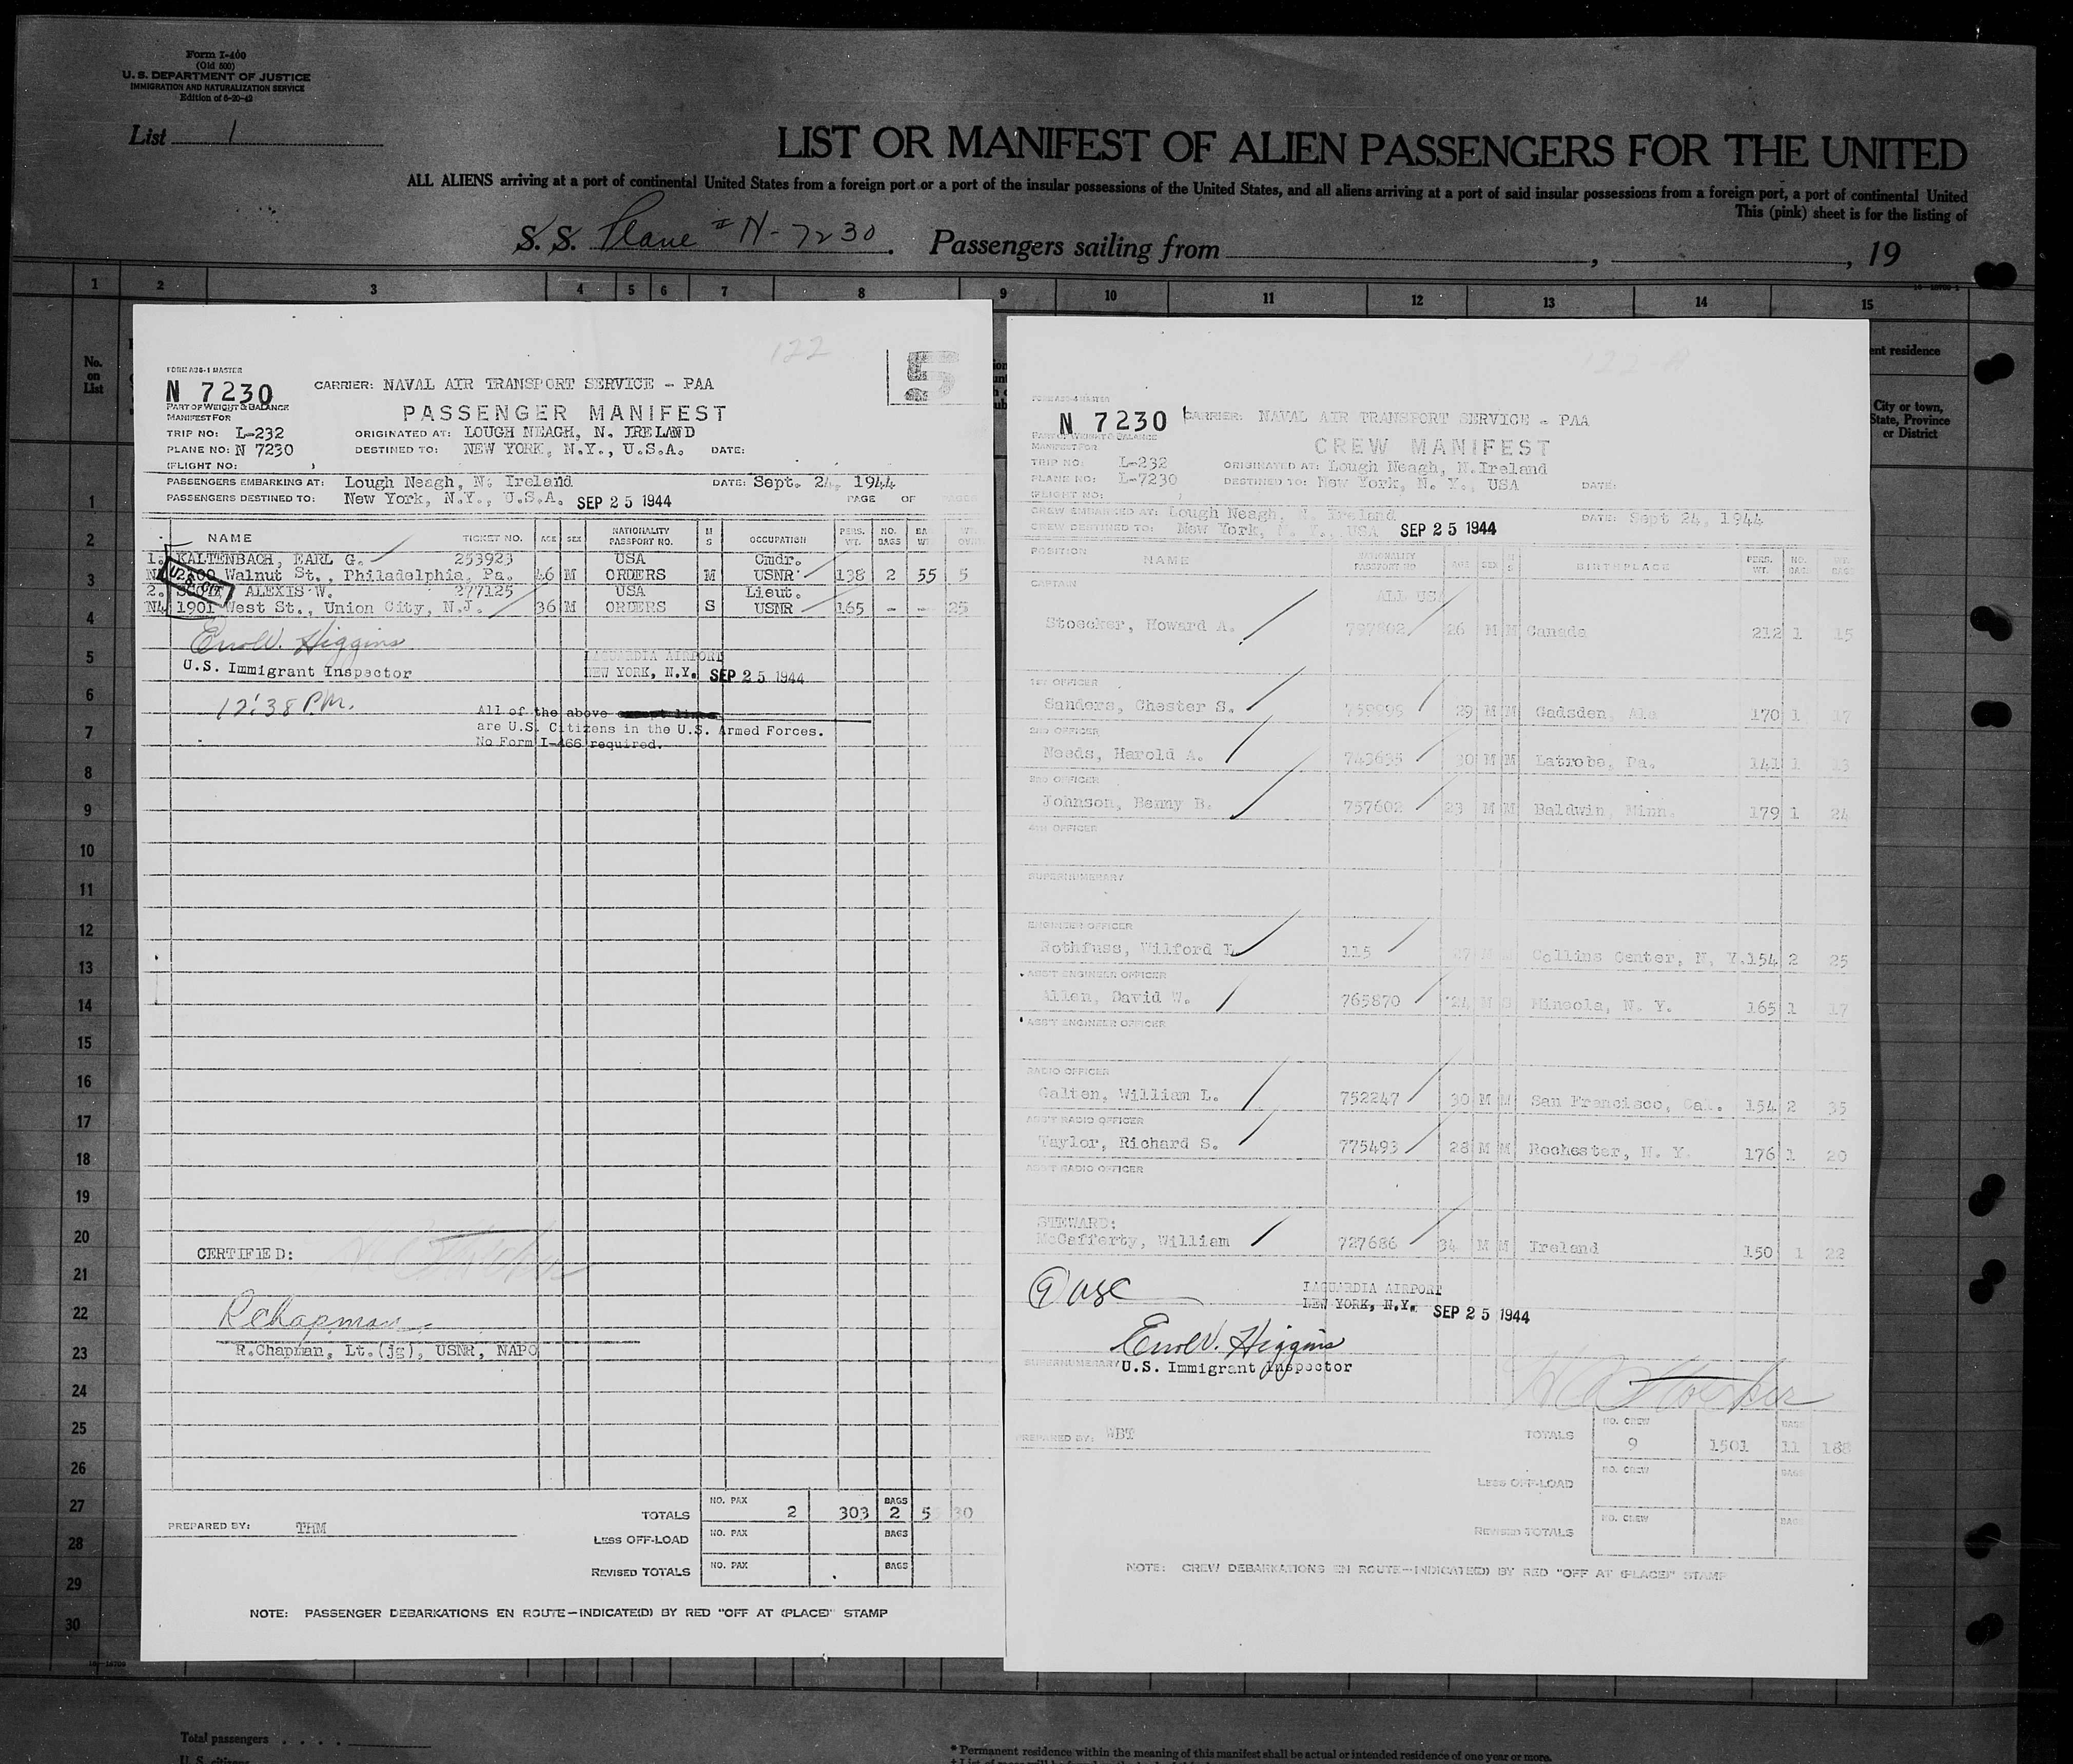 Form I-400
(Old 500)
U. S. DEPARTMENT OF JUSTICE
IMMIGRATION AND NATURALIZATION SERVICE
Edition of 6-20-42
List 1
LIST OR MANIFEST OF ALIEN PASSENGERS FOR THE UNITED
ALL ALIENS arriving at a port of continental United States from a foreign port or a port of the insular possessions of the United States, and all aliens arriving at a port of said insular possessions from a foreign port, a port of continental United
This (pink) sheet is for the listing of
S. S. Plane # N-7230. Passengers sailing from , , 19
1 2 3 4 5 6 7 8 9 10 11 12 13 14 15
No. on List
ent residence
City or town, State, Province or District
1
2
3
4
5
6
7
8
9
10
11
12
13
14
15
16
17
18
19
20
21
22
23
24
25
26
27
28
29
30
122
FORM A28-1 MASTER
N 7230 CARRIER: NAVAL AIR TRANSPORT SERVICE - PAA
PART OF WEIGHT & BALANCE
PASSENGER MANIFEST
MANIFEST FOR
TRIP NO: L-232 ORIGINATED AT: LOUGH NEAGH, N. IRELAND
PLANE NO: N 7230 DESTINED TO: NEW YORK, N.Y., U.S.A. DATE:
(FLIGHT NO: )
PASSENGERS EMBARKING AT: Lough Neagh, N. Ireland DATE: Sept. 24, 1944
PASSENGERS DESTINED TO: New York, N.Y., U.S.A. SEP 25 1944 PAGE OF PAGES
NAME TICKET NO. AGE SEX NATIONALITY PASSPORT NO. M S OCCUPATION PERS. WT. NO. BAGS
1. KALTENBACH, EARL G. 253923 USA Cmdr.
Walnut St., Philadelphia, Pa. 46 M ORDERS M USNR 138 2 55 5
2. ALEXIS W. 277125 USA Lieut.
1901 West St., Union City, N.J. 36 M ORDERS S USNR 165 - - 25
U.S. CIT
Errol V. Higgins
U.S. Immigrant Inspector
LAGUARDIA AIRPORT
NEW YORK, N.Y. SEP 25 1944
12:38 P.M.
All of the above except line
are U.S. Citizens in the U.S. Armed Forces.
No Form I-466 required.
CERTIFIED:
R Chapman
R.Chapman, Lt.(jg), USNR, NAPO
TOTALS NO. PAX 2 303 BAGS 2 5 30
PREPARED BY: THM
LESS OFF-LOAD NO. PAX BAGS
REVISED TOTALS NO. PAX BAGS
NOTE: PASSENGER DEBARKATIONS EN ROUTE-INDICATE(D) BY RED "OFF AT (PLACE)" STAMP
N 7230 CARRIER: NAVAL AIR TRANSPORT SERVICE - PAA
PART OF WEIGHT & BALANCE
CREW MANIFEST
MANIFEST FOR
TRIP NO: L-232 ORIGINATED AT: Lough Neagh, N.Ireland
PLANE NO: L-7230 DESTINED TO: New York, N. Y., USA DATE:
(FLIGHT NO: )
CREW EMBARKED AT: Lough Neagh, N. Ireland DATE: Sept 24, 1944
CREW DESTINED TO: New York, N. Y., USA SEP 25 1944
POSITION NAME NATIONALITY PASSPORT NO AGE SEX BIRTHPLACE PERS. WT. NO. BAGS
CAPTAIN ALL USA
Stoecker, Howard A. 797802 26 M M Canada 212 1 15
1ST OFFICER
Sanders, Chester S. 759999 29 M M Gadsden, Ala 170 1 17
2ND OFFICER
Needs, Harold A. 743635 30 M M Latrobe, Pa. 141 1 13
3RD OFFICER
Johnson, Benny B. 757602 23 M M Baldwin, Minn. 179 1 24
4TH OFFICER
SUPERNUMERARY
ENGINEER OFFICER
Rothfuss, Wilford L 115 27 Collins Center, N. Y. 154 2 25
ASS'T ENGINEER OFFICER
Allen, David W. 765870 24 M S Mineola, N. Y. 165 1 17
ASS'T ENGINEER OFFICER
RADIO OFFICER
Galten, William L. 752247 30 M M San Francisco, Cal. 154 2 35
ASS'T RADIO OFFICER
Taylor, Richard S. 775493 28 M M Rochester, N. Y. 176 1 20
ASS'T RADIO OFFICER
STEWARD:
McCafferty, William 727686 34 M M Ireland 150 1 22
9 USC
LAGUARDIA AIRPORT
NEW YORK, N.Y. SEP 25 1944
Errol V. Higgins
SUPERNUMERARY U.S. Immigrant Inspector
PREPARED BY: WBT
TOTALS NO. CREW 9 1501 BAGS 11 188
LESS OFF-LOAD NO. CREW BAGS
REVISED TOTALS NO. CREW BAGS
NOTE: CREW DEBARKATIONS EN ROUTE-INDICATE(D) BY RED "OFF AT (PLACE)" STAMP
Total passengers
U. S. citizens
* Permanent residence within the meaning of this manifest shall be actual or intended residence of one year or more.